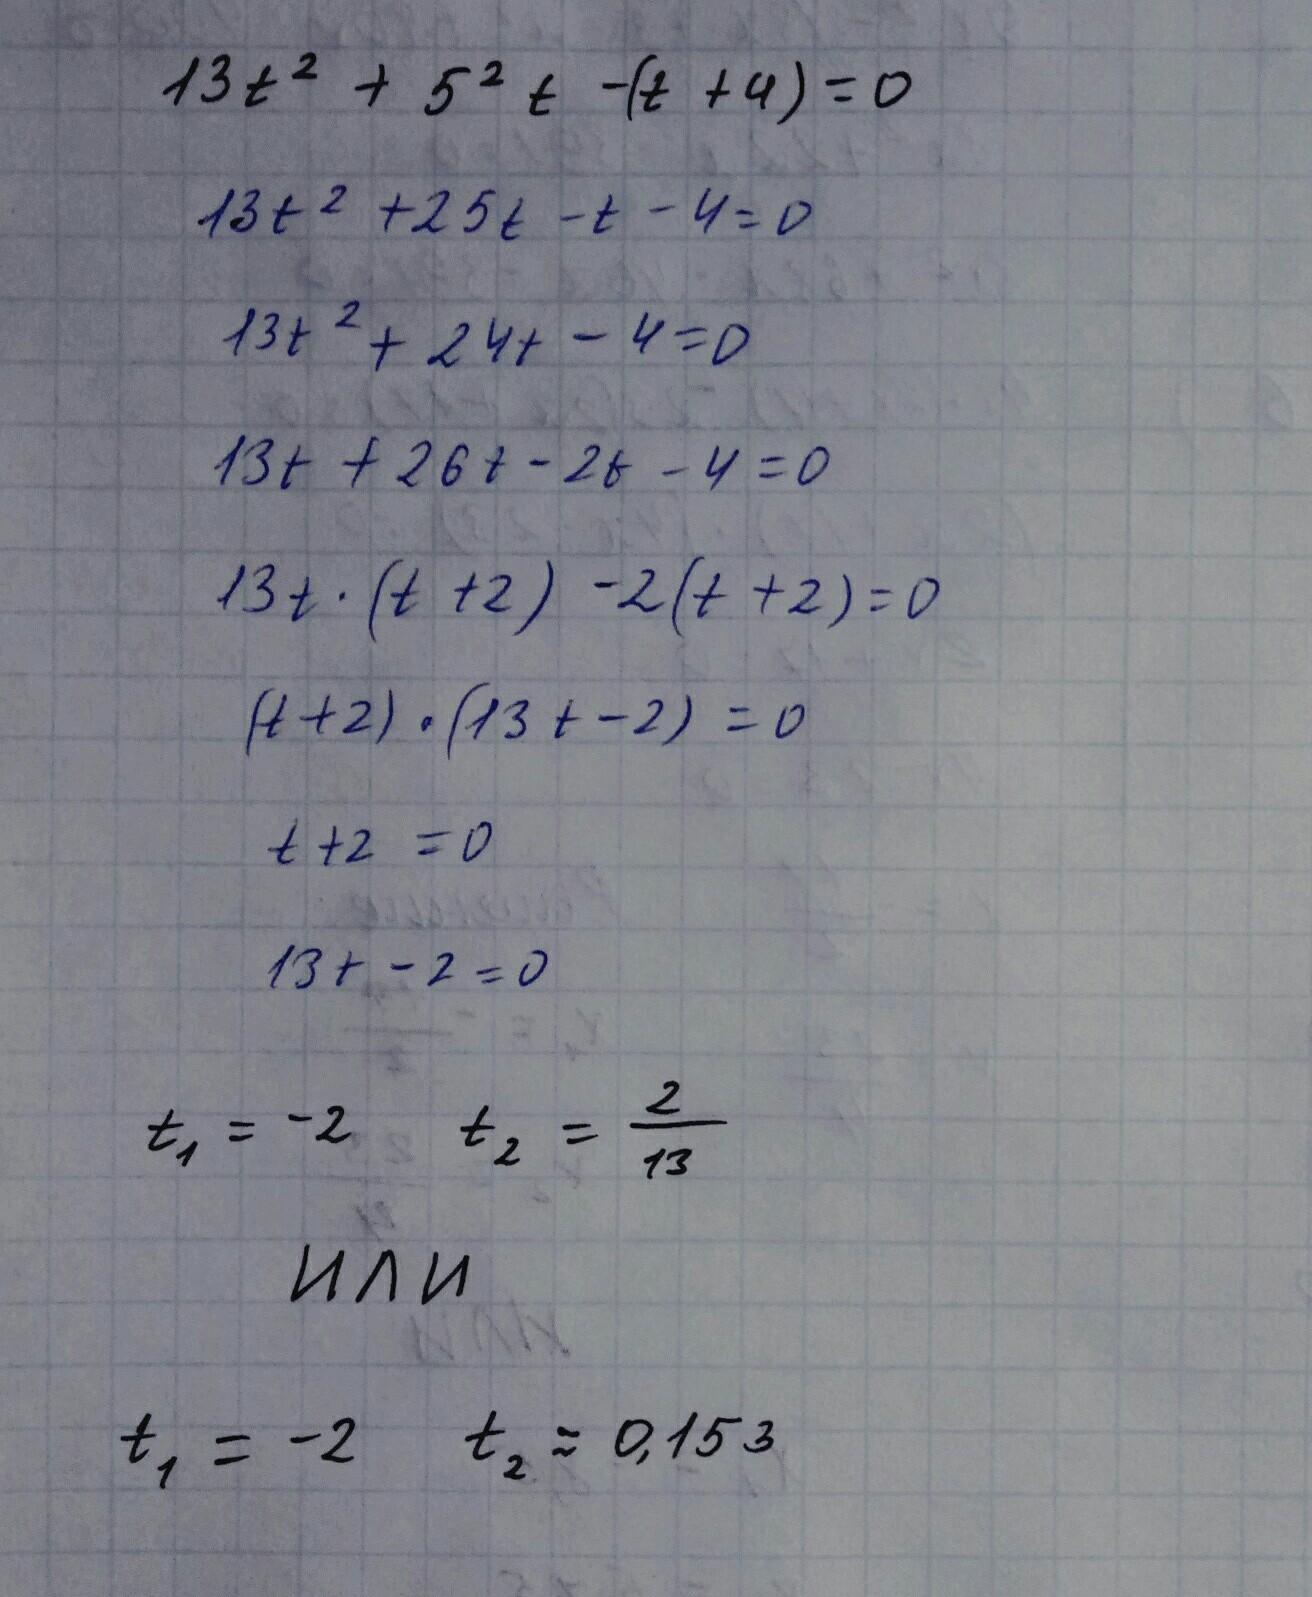 13t² + 5² t -(t + 4) = 0
13t² + 25t - t - 4 = 0
13t² + 24t - 4 = 0
13t + 26t - 2t - 4 = 0
13t · (t + 2) - 2(t + 2) = 0
(t + 2) · (13t - 2) = 0
t + 2 = 0
13t - 2 = 0
t₁ = -2 t₂ = 2/13
ИЛИ
t₁ = -2 t₂ ≈ 0,153